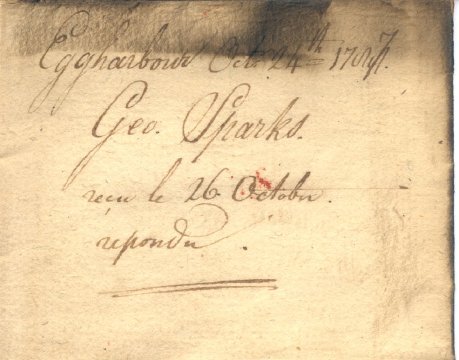 Eggharbour Octr. 24th 1787.
Geo. Sparks.
recu le 26 Octobre.
répondu